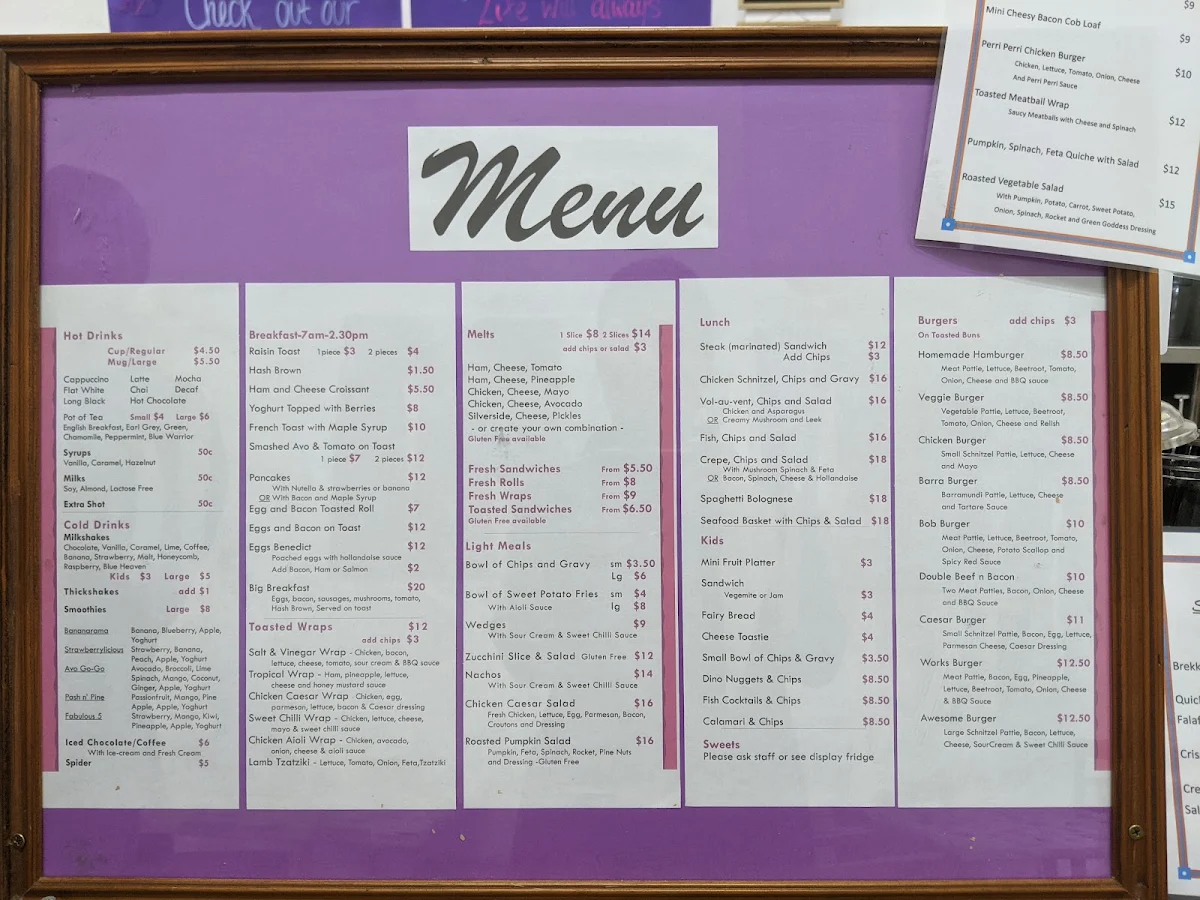 Check out our
Life will always
Mini Cheesy Bacon Cob Loaf $9
$9
Perri Perri Chicken Burger $10
Chicken, Lettuce, Tomato, Onion, Cheese
And Perri Perri Sauce
Toasted Meatball Wrap $12
Saucy Meatballs with Cheese and Spinach
Pumpkin, Spinach, Feta Quiche with Salad $12
Roasted Vegetable Salad $15
With Pumpkin, Potato, Carrot, Sweet Potato,
Onion, Spinach, Rocket and Green Goddess Dressing
Menu
Hot Drinks
Cup/Regular $4.50
Mug/Large $5.50
Cappuccino Latte Mocha
Flat White Chai Decaf
Long Black Hot Chocolate
Pot of Tea Small $4 Large $6
English Breakfast, Earl Grey, Green,
Chamomile, Peppermint, Blue Warrior
Syrups 50c
Vanilla, Caramel, Hazelnut
Milks 50c
Soy, Almond, Lactose Free
Extra Shot 50c
Cold Drinks
Milkshakes
Chocolate, Vanilla, Caramel, Lime, Coffee,
Banana, Strawberry, Malt, Honeycomb,
Raspberry, Blue Heaven
Kids $3 Large $5
Thickshakes add $1
Smoothies Large $8
Bananarama Banana, Blueberry, Apple,
Yoghurt
Strawberrylicious Strawberry, Banana,
Peach, Apple, Yoghurt
Avo Go-Go Avocado, Broccoli, Lime
Spinach, Mango, Coconut,
Ginger, Apple, Yoghurt
Pash n' Pine Passionfruit, Mango, Pine
Apple, Apple, Yoghurt
Fabulous 5 Strawberry, Mango, Kiwi,
Pineapple, Apple, Yoghurt
Iced Chocolate/Coffee $6
With Ice-cream and Fresh Cream
Spider $5
Breakfast-7am-2.30pm
Raisin Toast 1piece $3 2 pieces $4
Hash Brown $1.50
Ham and Cheese Croissant $5.50
Yoghurt Topped with Berries $8
French Toast with Maple Syrup $10
Smashed Avo & Tomato on Toast
1 piece $7 2 pieces $12
Pancakes $12
With Nutella & strawberries or banana
OR With Bacon and Maple Syrup
Egg and Bacon Toasted Roll $7
Eggs and Bacon on Toast $12
Eggs Benedict $12
Poached eggs with hollandaise sauce
Add Bacon, Ham or Salmon $2
Big Breakfast $20
Eggs, bacon, sausages, mushrooms, tomato,
Hash Brown, Served on toast
Toasted Wraps $12
add chips $3
Salt & Vinegar Wrap - Chicken, bacon,
lettuce, cheese, tomato, sour cream & BBQ sauce
Tropical Wrap - Ham, pineapple, lettuce,
cheese and honey mustard sauce
Chicken Caesar Wrap - Chicken, egg,
parmesan, lettuce, bacon & Caesar dressing
Sweet Chilli Wrap - Chicken, lettuce, cheese,
mayo & sweet chilli sauce
Chicken Aioli Wrap - Chicken, avocado,
onion, cheese & aioli sauce
Lamb Tzatziki - Lettuce, Tomato, Onion, Feta,Tzatziki
Melts 1 Slice $8 2 Slices $14
add chips or salad $3
Ham, Cheese, Tomato
Ham, Cheese, Pineapple
Chicken, Cheese, Mayo
Chicken, Cheese, Avocado
Silverside, Cheese, Pickles
- or create your own combination -
Gluten Free available
Fresh Sandwiches From $5.50
Fresh Rolls From $8
Fresh Wraps From $9
Toasted Sandwiches From $6.50
Gluten Free available
Light Meals
Bowl of Chips and Gravy sm $3.50
Lg $6
Bowl of Sweet Potato Fries sm $4
With Aioli Sauce lg $8
Wedges $9
With Sour Cream & Sweet Chilli Sauce
Zucchini Slice & Salad Gluten Free $12
Nachos $14
With Sour Cream & Sweet Chilli Sauce
Chicken Caesar Salad $16
Fresh Chicken, Lettuce, Egg, Parmesan, Bacon,
Croutons and Dressing
Roasted Pumpkin Salad $16
Pumpkin, Feta, Spinach, Rocket, Pine Nuts
and Dressing -Gluten Free
Lunch
Steak (marinated) Sandwich $12
Add Chips $3
Chicken Schnitzel, Chips and Gravy $16
Vol-au-vent, Chips and Salad $16
Chicken and Asparagus
OR Creamy Mushroom and Leek
Fish, Chips and Salad $16
Crepe, Chips and Salad $18
With Mushroom Spinach & Feta
OR Bacon, Spinach, Cheese & Hollandaise
Spaghetti Bolognese $18
Seafood Basket with Chips & Salad $18
Kids
Mini Fruit Platter $3
Sandwich
Vegemite or Jam $3
Fairy Bread $4
Cheese Toastie $4
Small Bowl of Chips & Gravy $3.50
Dino Nuggets & Chips $8.50
Fish Cocktails & Chips $8.50
Calamari & Chips $8.50
Sweets
Please ask staff or see display fridge
Burgers add chips $3
On Toasted Buns
Homemade Hamburger $8.50
Meat Pattie, Lettuce, Beetroot, Tomato,
Onion, Cheese and BBQ sauce
Veggie Burger $8.50
Vegetable Pattie, Lettuce, Beetroot,
Tomato, Onion, Cheese and Relish
Chicken Burger $8.50
Small Schnitzel Pattie, Lettuce, Cheese
and Mayo
Barra Burger $8.50
Barramundi Pattie, Lettuce, Cheese
and Tartare Sauce
Bob Burger $10
Meat Pattie, Lettuce, Beetroot, Tomato,
Onion, Cheese, Potato Scallop and
Spicy Red Sauce
Double Beef n Bacon $10
Two Meat Patties, Bacon, Onion, Cheese
and BBQ Sauce
Caesar Burger $11
Small Schnitzel Pattie, Bacon, Egg, Lettuce,
Parmesan Cheese, Caesar Dressing
Works Burger $12.50
Meat Pattie, Bacon, Egg, Pineapple,
Lettuce, Beetroot, Tomato, Onion, Cheese
& BBQ Sauce
Awesome Burger $12.50
Large Schnitzel Pattie, Bacon, Lettuce,
Cheese, SourCream & Sweet Chilli Sauce
Brekk
Quic
Falaf
Cris
Cre
Sal